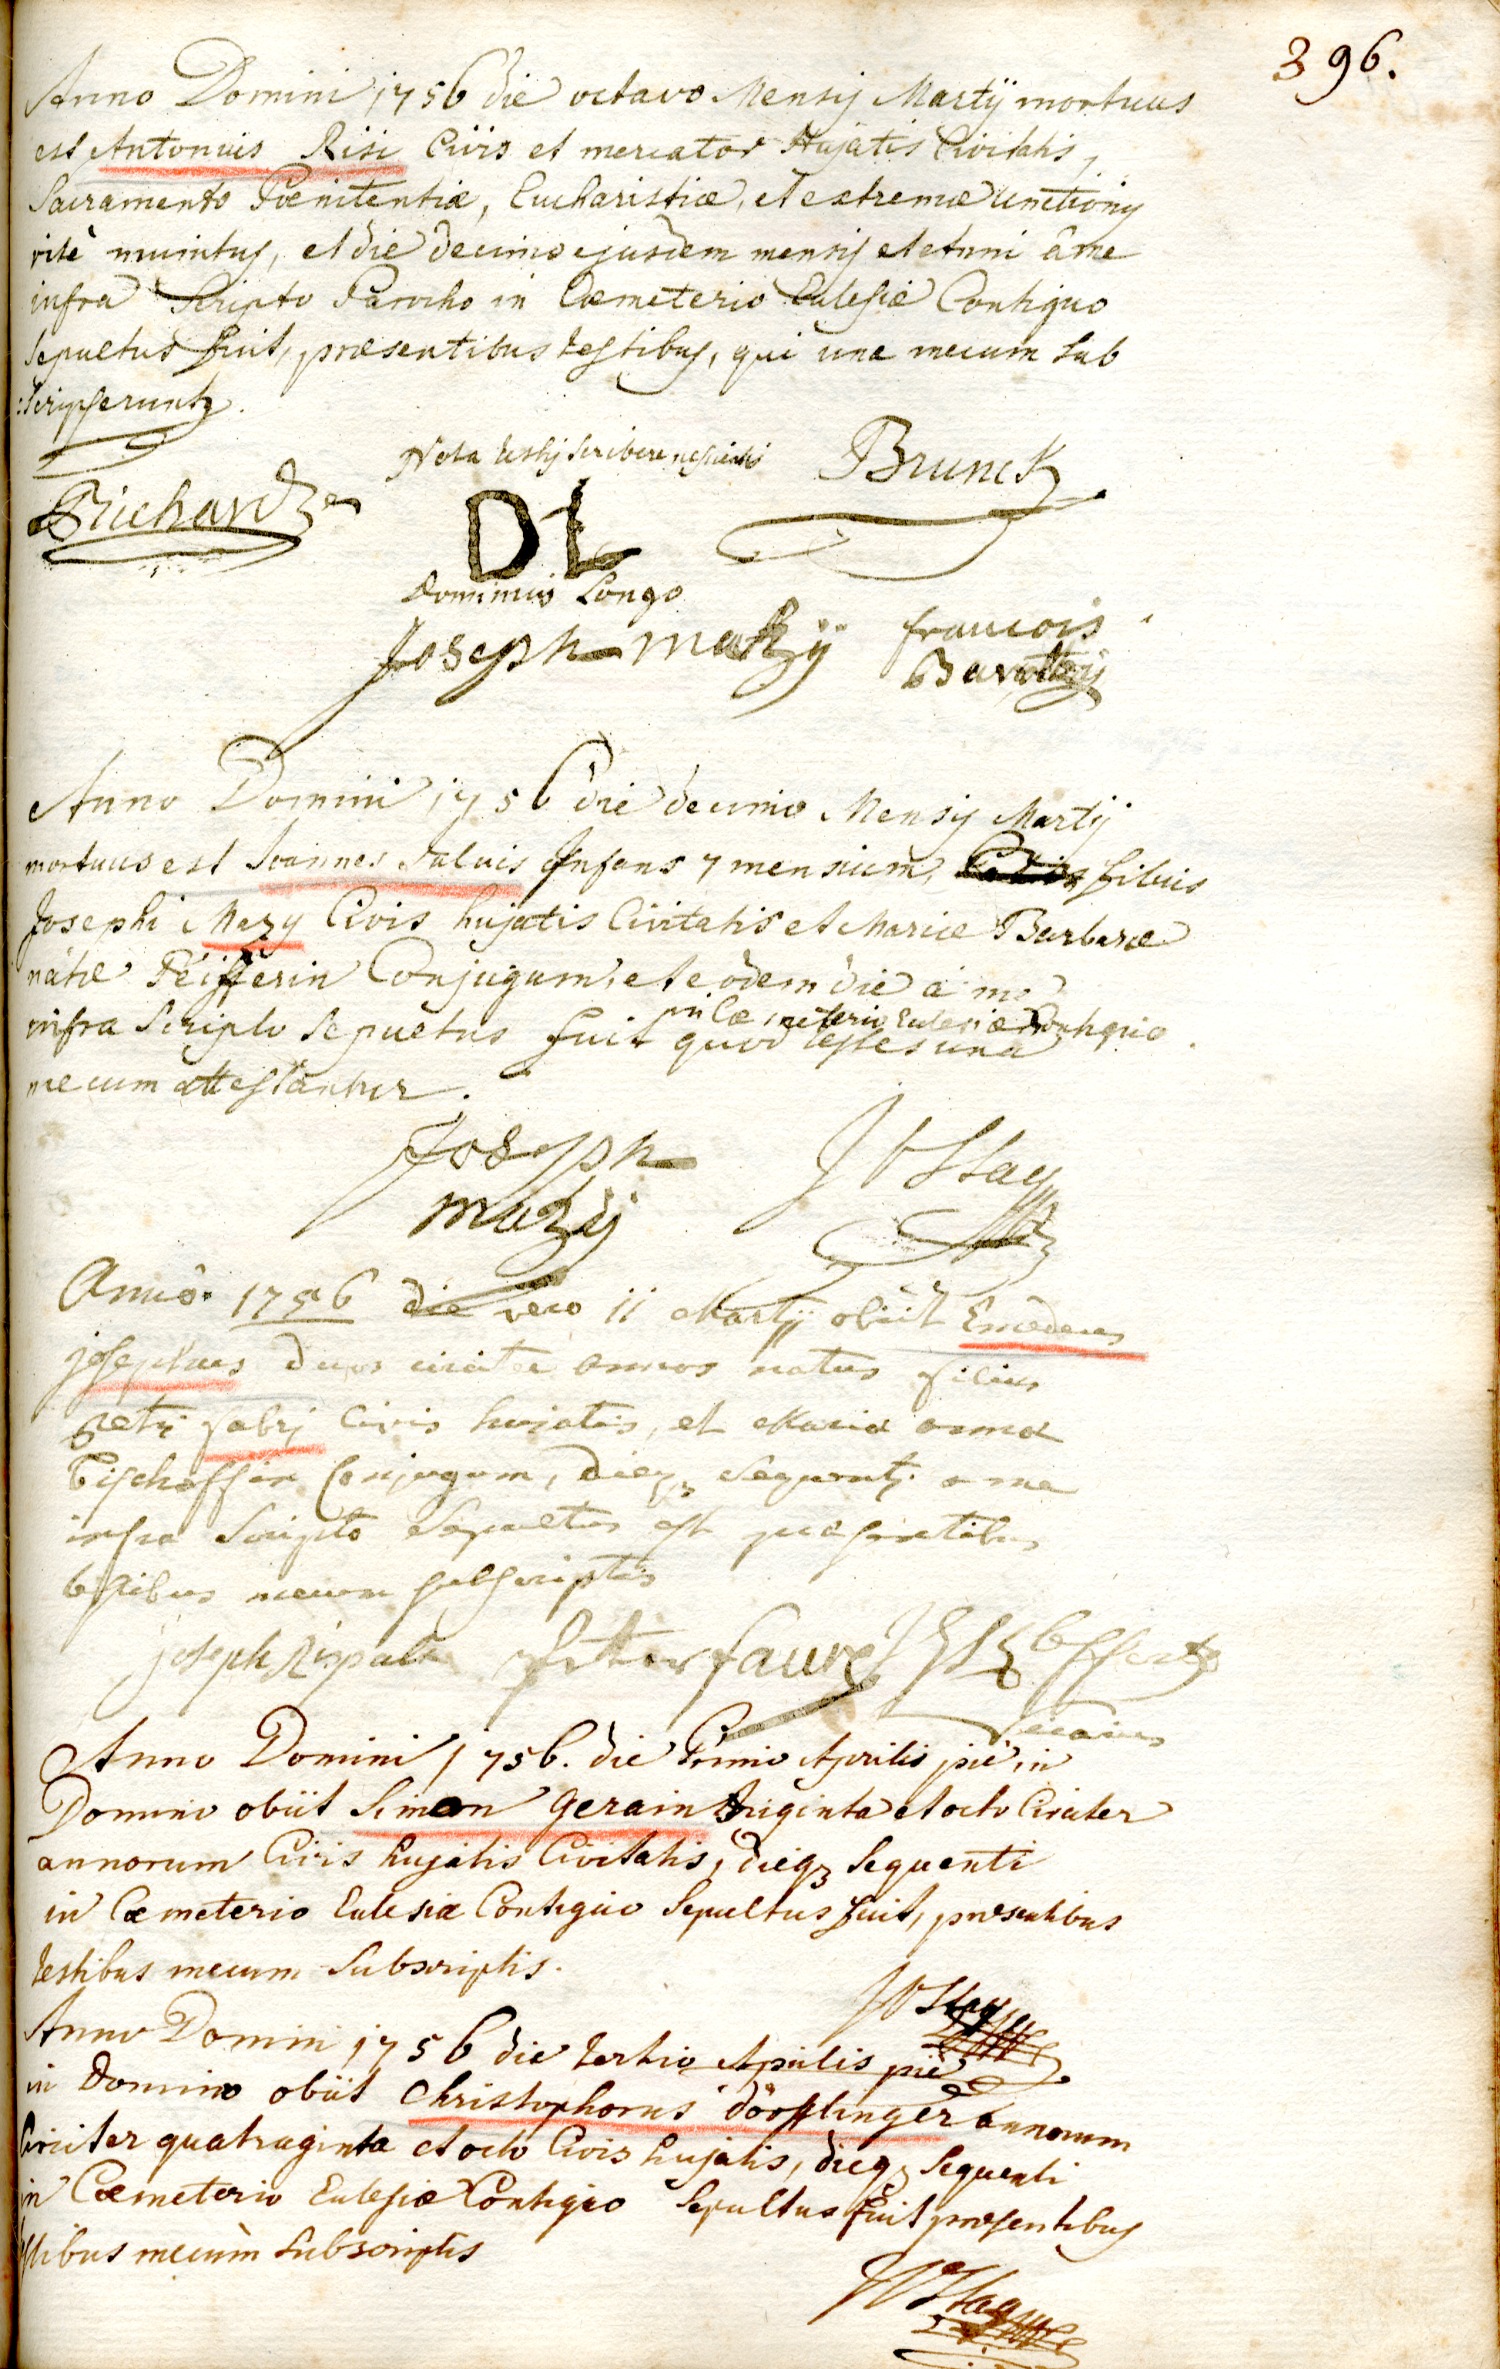 396.
Anno Domini 1756 die octavo Mensis Martij mortuus
est Antonius Risi Civis et mercator Hujatis Civitatis,
Sacramento Pœnitentiæ, Eucharistiæ, et extremæ unctionis
ritè munitus, et die decimo ejusdem mensis et anni â me
infra Scripto Parocho in Cœmeterio Eclesiæ Contiguo
Sepultus fuit, præsentibus testibus, qui una mecum Sub
:Scripserunt.
Nota testis scribere nescientis
Brunck
Richard
DL
Dominicus Longo
Joseph mazÿ
francois
Anno Domini 1756 die decimo Mensis Martij
mortuus est Joannes Infans 7 mensium, filius
Josephi Mazy Civis hujatis Civitatis et Mariæ Barbaræ
natæ Peifferin Conjugum, et eodem die à me
in Cœmeterio Eclesiæ Contiguo
infra Scripto Sepultus fuit quod testes una
mecum attestantur.
Joseph
mazÿ
Anno 1756 die vero 11 Martij obiit
josephus duos circiter annos natus filius
petri fabri Civis hujatis, et Maria anna
Bischoffin Conjugum, dieq3 Sequenti a me
infra Scripto Sepultus est præsentibus
testibus mecum subscriptis
joseph faure
vicarius
Anno Domini 1756. die Primo Aprilis piè in
Domino obiit Simon Gerain triginta et octo Circiter
annorum Civis hujatis Civitatis, dieq3 Sequenti
in Cœmeterio Eclesiæ Contiguo Sepultus fuit, præsentibus
testibus mecum Subscriptis.
Anno Domini 1756 die tertio Aprilis piè
in Domino obiit Christophorus dörflinger annorum
Circiter quatraginta et octo Civis hujatis, dieq3 Sequenti
in Cœmeterio Eclesiæ Contiguo Sepultus fuit præsentibus
testibus mecum Subscriptis